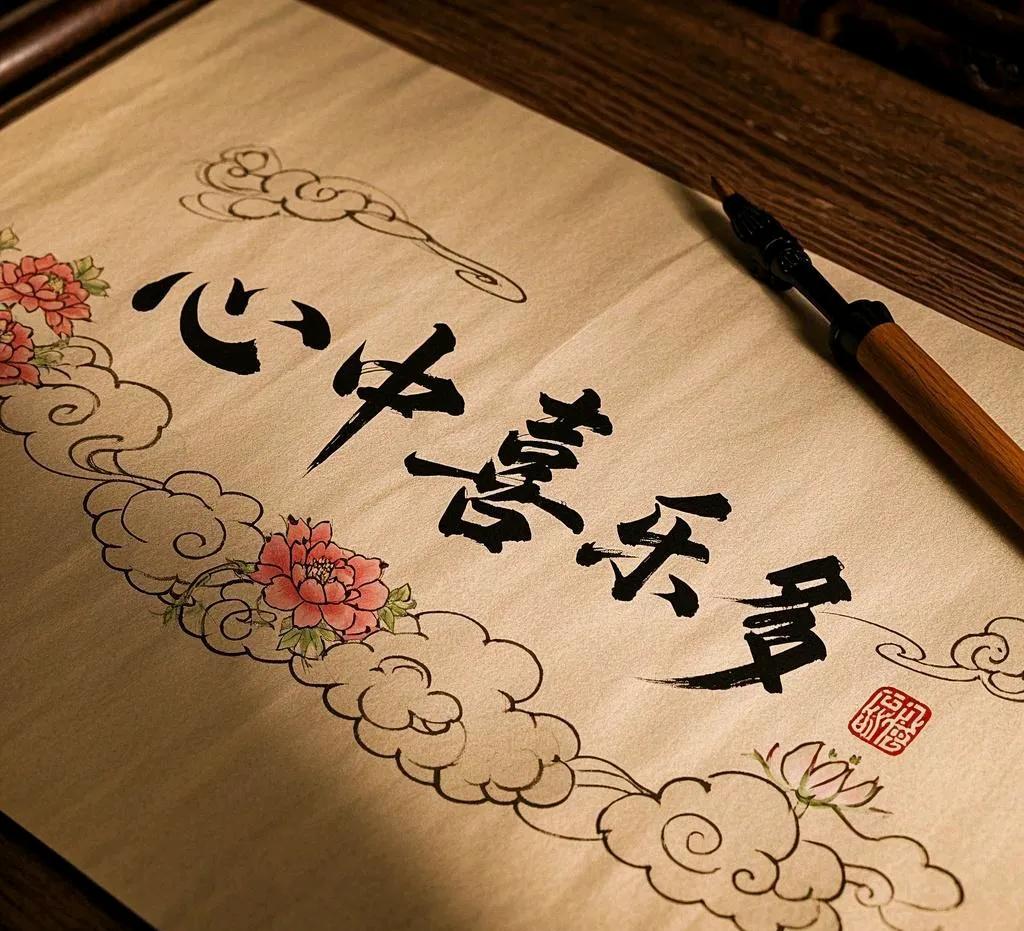 心中喜乐多